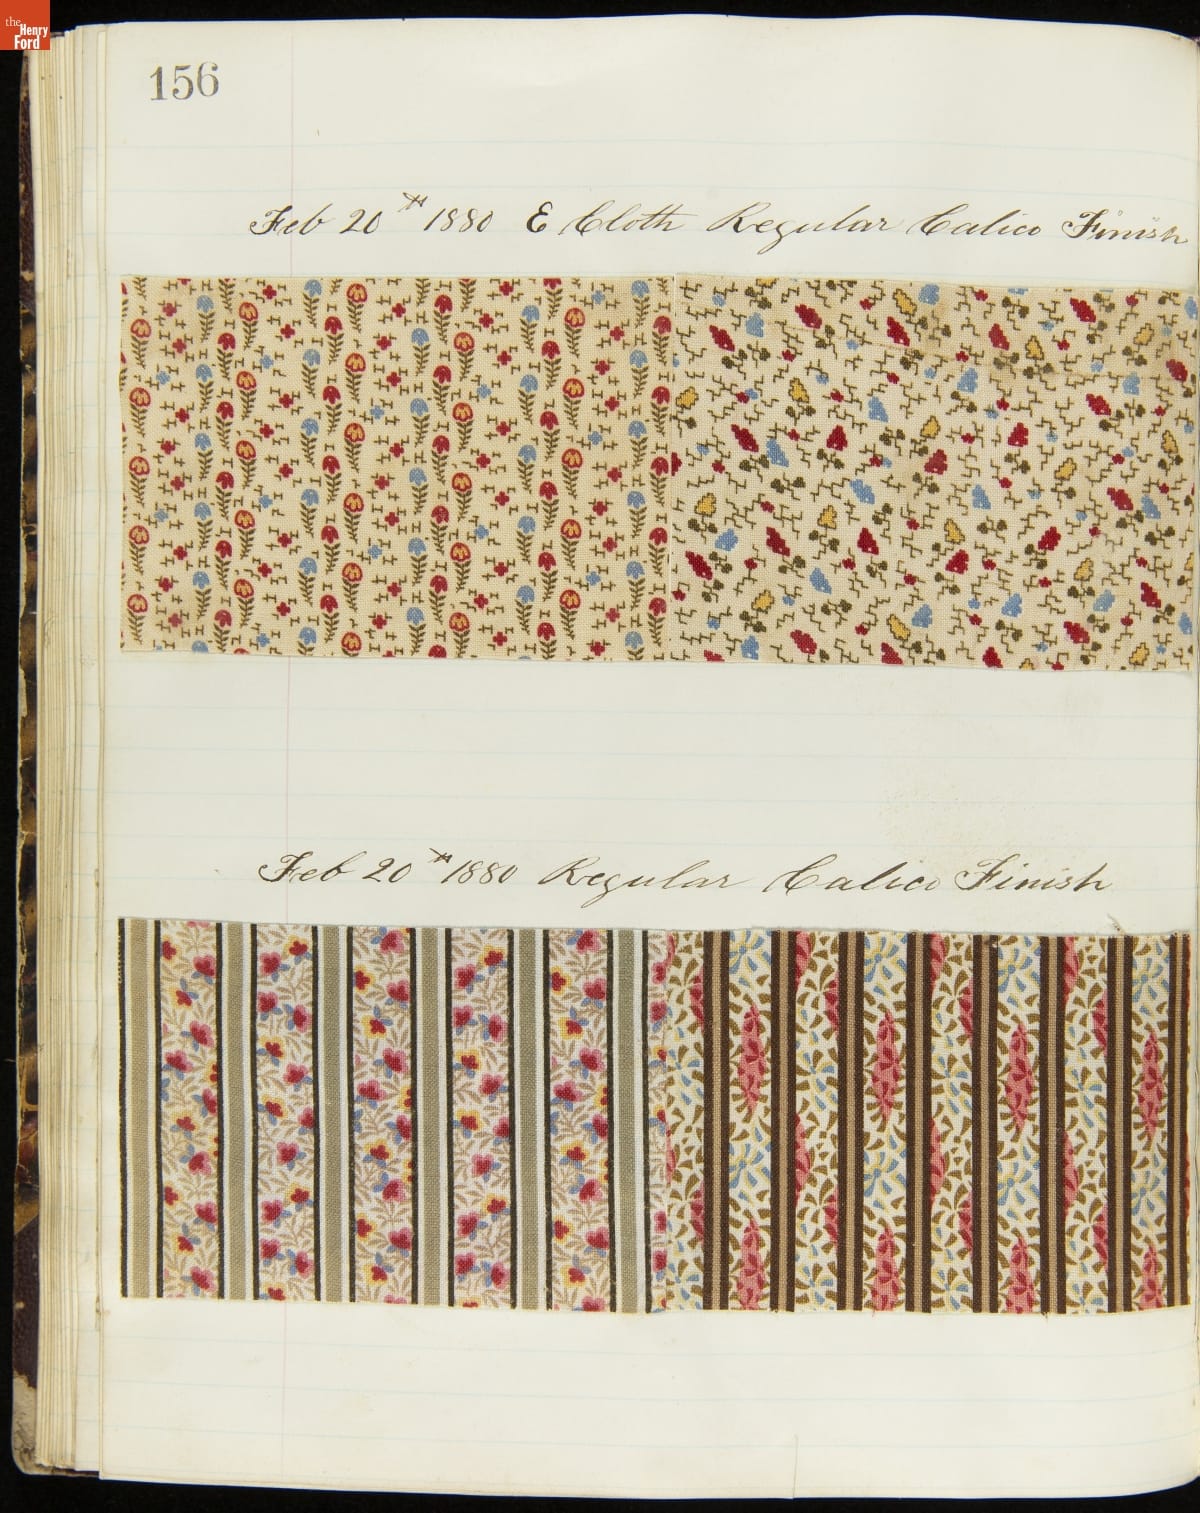 the
Henry
Ford
156
Feb 20th 1880 E Cloth Regular Calico Finish
Feb 20th 1880 Regular Calico Finish